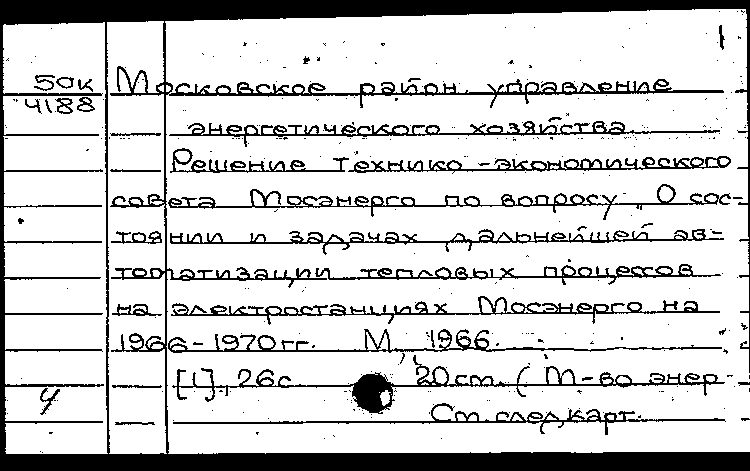 1
50к Московское район. управление
4188
энергетического хозяйства
Решение технико-экономического
совета Мосэнерго по вопросу „О сос-
тоянии и задачах дальнейшей ав-
томатизации тепловых процессов
на электростанциях Мосэнерго на
1966-1970 гг. М., 1966.
[1], 26с 20 см. (М-во энер-
Ч
См. след. карт.